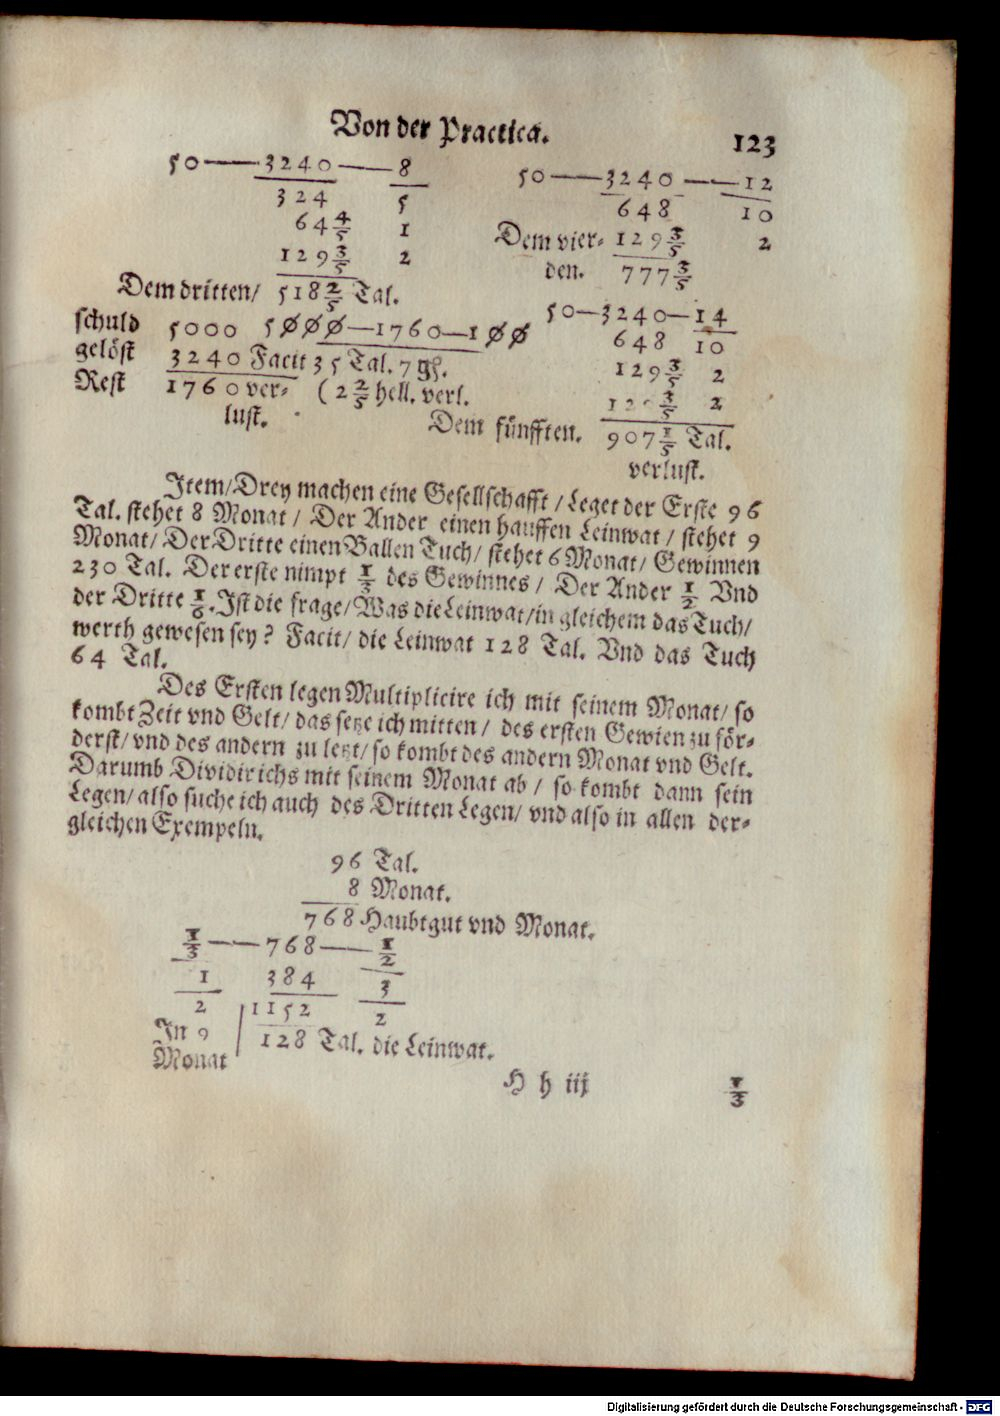 Von der Practica.
123
50——3240——8
324 5
64 4/5 1
129 3/5 2
Dem dritten/ 518 2/5 Tal.
50——3240——12
648 10
Dem vier- 129 3/5 2
den. 777 3/5
schuld 5000 5000—1760—100
gelöst 3240 Facit 35 Tal. 7 gß.
Rest 1760 ver- (2 2/5 hell. verl.
lust.
50—3240—14
648 10
129 3/5 2
3/5 2
Dem fünfften. 907 1/5 Tal.
verlust.
Item/Drey machen eine Gesellschafft/Leget der Erste 96
Tal. stehet 8 Monat/ Der Ander einen hauffen Leinwat/ stehet 9
Monat/ Der Dritte einen Ballen Tuch/ stehet 6 Monat/ Gewinnen
230 Tal. Der erste nimpt 1/3 des Gewinnes/ Der Ander 1/2 Vnd
der Dritte 1/6. Ist die frage/Was die Leinwat/in gleichem das Tuch/
werth gewesen sey? Facit/ die Leinwat 128 Tal. Vnd das Tuch
64 Tal.
Des Ersten legen Multiplicire ich mit seinem Monat/ so
kombt Zeit vnd Gelt/ das setze ich mitten/ des ersten Gewien zu för-
derst/ vnd des andern zu letzt/ so kombt des andern Monat vnd Gelt.
Darumb Dividir ichs mit seinem Monat ab/ so kombt dann sein
Legen/ also suche ich auch des Dritten Legen/ vnd also in allen der-
gleichen Exempeln.
96 Tal.
8 Monat.
768 Haubtgut vnd Monat.
1/3——768——1/2
1 384 3
2 1152 2
In 9 128 Tal. die Leinwat.
Monat
H h iij
1/3
Digitalisierung gefördert durch die Deutsche Forschungsgemeinschaft - DFG